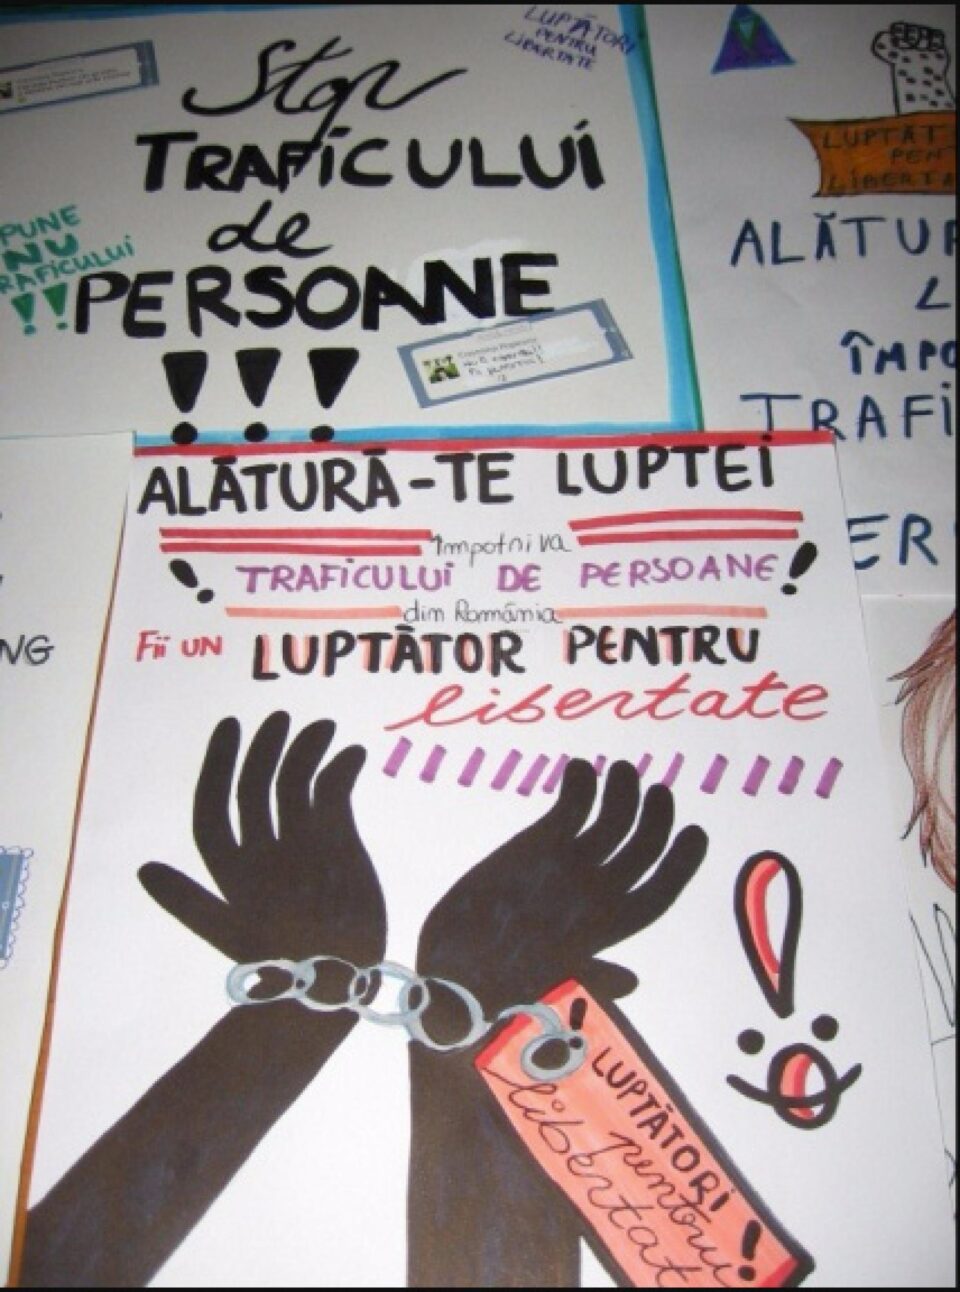 Stop
TRAFICULUI
de
PERSOANE
!!!
LUPTĂTORI
PENTRU
LIBERTATE
PUNE
NU
TRAFICULUI
!!
LUPTĂT
PEN
LIBERTA
ALĂTUR
L
ÎMPO
TRAFI
ER
NG
ALĂTURĂ-TE LUPTEI
împotriva
! TRAFICULUI DE PERSOANE!
din România
Fii UN LUPTĂTOR PENTRU
libertate
!
LUPTĂTORI
pentru
libertat
!